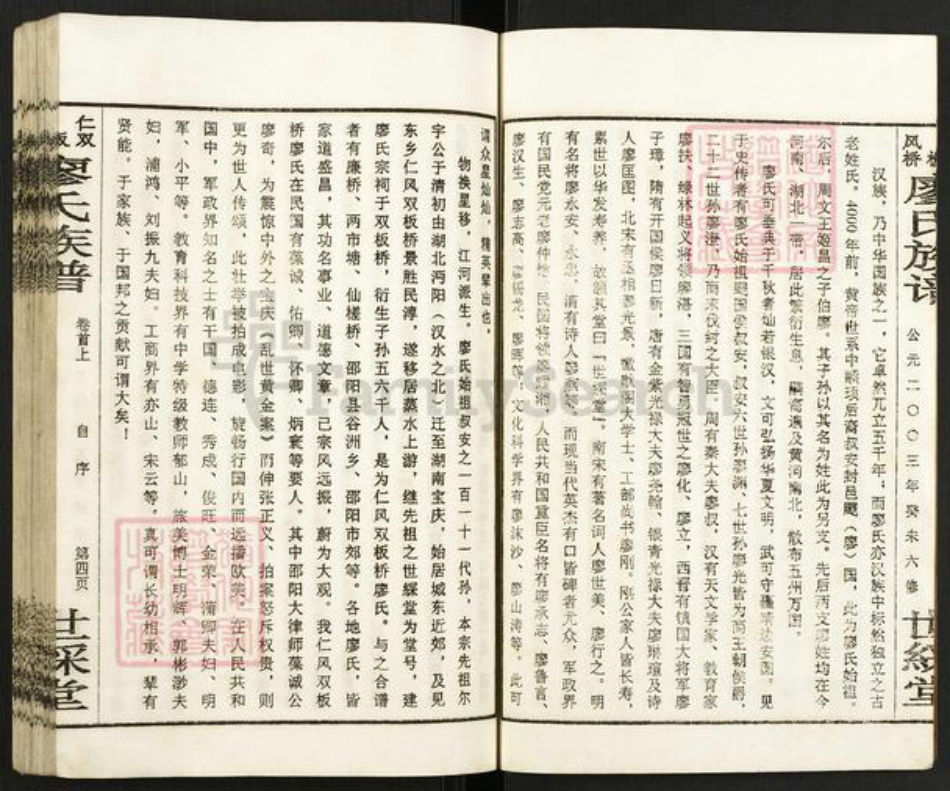 风桥
廖氏族谱
公元二〇〇三年癸未六修
世綵堂
汉族，乃中华国族之一，它卓然兀立五千年；而廖氏亦汉族中标然独立之古
老姓氏。4000年前，黄帝世系中颛顼后裔叔安封邑飂（廖）国，此为廖氏始祖。
东后，周文王姬昌之子伯廖。其子孙以其名为姓此为另支。先后两支廖姓均在今
河南、湖北一带，居此繁衍生息，嗣裔遍及黄河南北，散布五洲万国。
廖氏可垂典于千秋者灿若银汉，文可弘扬华夏文明，武可守疆靖边安国。见
于史传者有廖氏始祖飂国侯叔安，叔安六世孙廖渊、七世孙廖光皆为商王朝侯爵，
二十二世孙廖澄，乃商末伐纣之大臣，周有秦大夫廖叔，汉有天文学家、教育家
廖扶、绿林起义将领廖湛，三国有智勇冠世之廖化、廖立，西晋有镇国大将军廖
子璋，隋有开国侯廖日新，唐有金紫光禄大夫廖尧翰、银青光禄大夫廖琳瑄及诗
人廖匡图，北宋有丞相廖光景、徽猷阁大学士、工部尚书廖刚。刚公家人皆长寿，
累世以华发寿养，故额其堂曰「世綵堂」。南宋有著名词人廖世美、廖行之。明
有名将廖永安、永忠，清有诗人廖燕等，而现当代英杰有口皆碑者尤众，军政界
有国民党元老廖仲恺，民国将领廖耀湘，人民共和国重臣名将有廖承志、廖鲁言、
廖汉生、廖志高、廖锡龙、廖晖等；文化科学界有廖沫沙、廖山涛等。此可
谓众星灿灿，精英辈出也。
物换星移，江河派生，廖氏始祖叔安之一百一十一代孙，本宗先祖尔
宇公于清初由湖北沔阳（汉水之北）迁至湖南宝庆，始居城东近郊，及见
东乡仁风双板桥景胜民淳，遂移居蒸水上游，继先祖之世綵堂为堂号，建
廖氏宗祠于双板桥，衍生子孙五六千人，是为仁风双板桥廖氏。与之合谱
者有廉桥、两市塘、仙槎桥、邵阳县谷洲乡、邵阳市郊等。各地廖氏，皆
家道盛昌，其功名事业、道德文章，已宗风远振，蔚为大观。我仁风双板
桥廖氏在民国有葆诚、佑卿、怀卿、炳寰等要人。其中邵阳大律师葆诚公
廖奇，为震惊中外之宝庆《乱世黄金案》而伸张正义、拍案怒斥权贵，则
更为世人传颂，此壮举被拍成电影，旋畅行国内而远播欧美。在人民共和
国中，军政界知名之士有干国、德连、秀成、俊旺、金荣、清卿夫妇、明
军、小平等。教育科技界有中学特级教师郁山，旅美博士明辉、郭彬渺夫
妇，浦鸿、刘振九夫妇。工商界有亦山、宋云等。真可谓长幼相承，辈有
贤能。于家族、于国邦之贡献可谓大矣！
仁双
廖氏族谱
卷首上
自序
第四页
世綵堂
FamilySearch